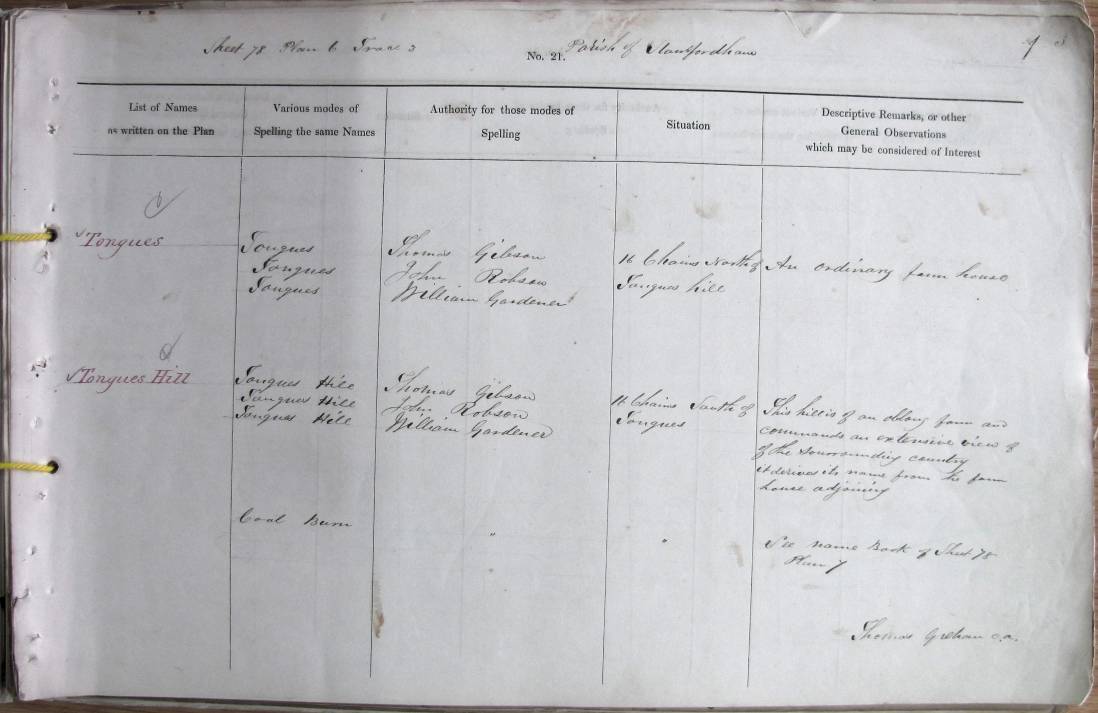 Sheet 78 Plan 6 Trace 3
No. 21.
Parish of Stamfordham
List of Names
as written on the Plan
Various modes of
Spelling the same Names
Authority for those modes of
Spelling
Situation
Descriptive Remarks, or other
General Observations
which may be considered of Interest
Tongues
Tongues
Tongues
Tongues
Thomas Gibson
John Robson
William Gardener
16 Chains North of
Tongues hill
An ordinary farm house
Tongues Hill
Tongues Hill
Tongues Hill
Tongues Hill
Thomas Gibson
John Robson
William Gardener
16 Chains South of
Tongues
This hill is of an oblong form and
commands an extensive view of
of the sourrounding country
it derives its name from the farm
house adjoining
Coal Burn
"
"
See name Book of Sheet 78
Plan 7
Thomas c.a.